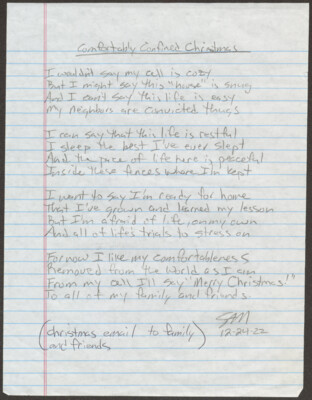 Comfortably Confined Christmas
I wouldn't say my cell is cozy
But I might say this "house" is snug
And I can't say this life is easy
My neighbors are convicted thugs
I can say that this life is restful
I sleep the best I've ever slept
And the pace of life here is peaceful
Inside these fences where I'm kept
I want to say I'm ready for home
That I've grown and learned my lesson
But I'm afraid of life on my own
And all of life's trials to stress on
For now I like my comfortableness
Removed from the world as I am
From my cell I'll say "Merry Christmas!"
To all of my family and friends
SAM
12-24-22
(Christmas email to family)
and friends